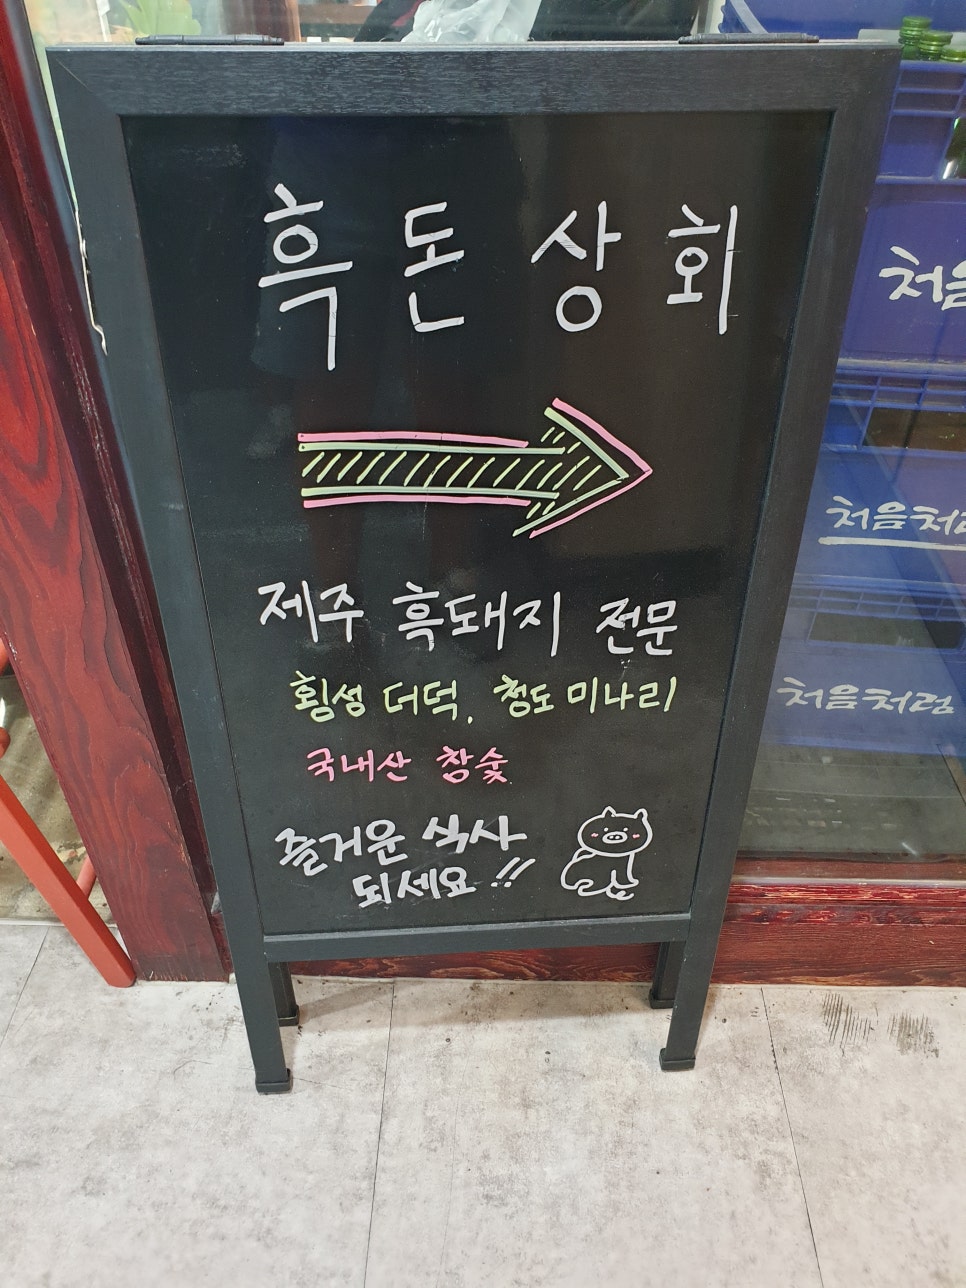 흑돈상회
제주 흑돼지 전문
횡성 더덕, 청도 미나리
국내산 참숯
즐거운 식사
되세요!!
처음
처음처럼
처음처럼